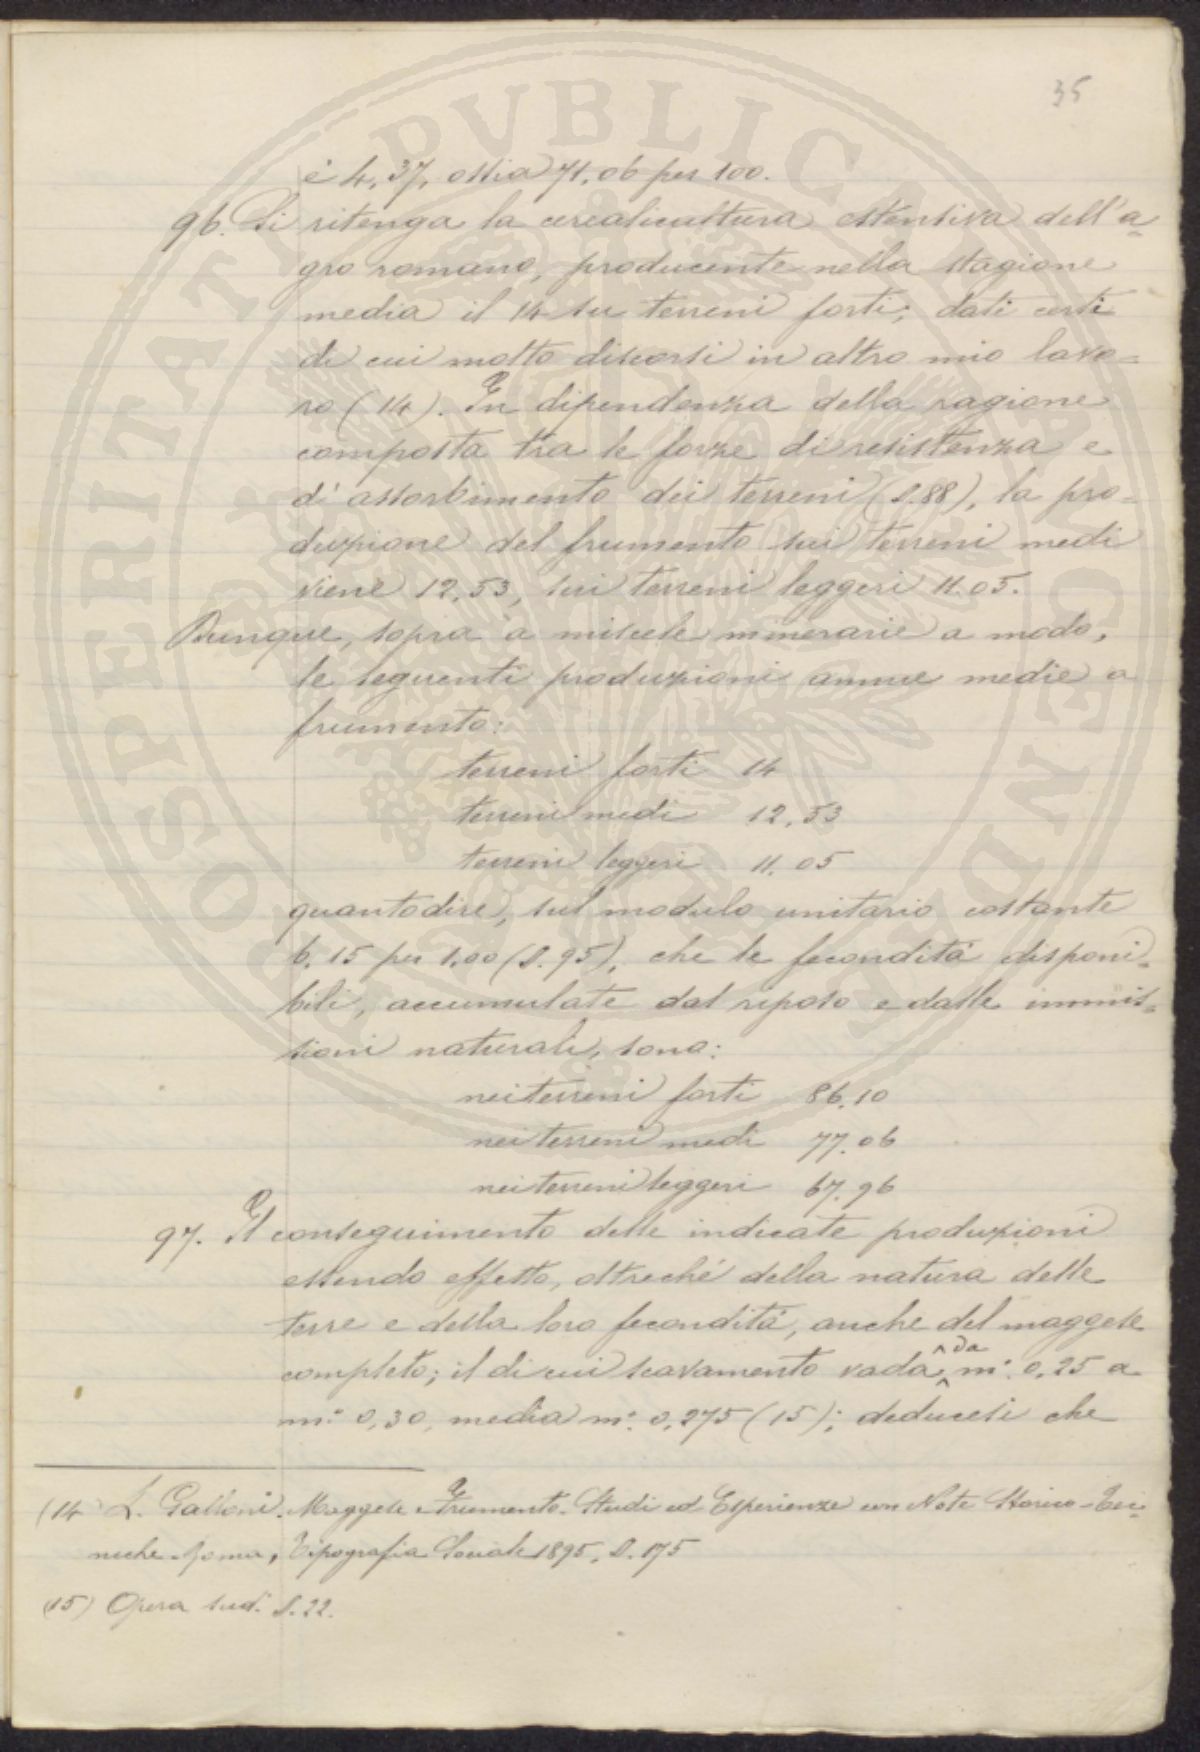 35
è 4,37, ossia 71,06 per 100.
96. Si ritenga la cerealicultura estensiva dell'a=
gro romano, producente nella stagione
media il 14 su terreni forti; dati certi
di cui molto discorsi in altro mio lavo=
ro (14). In dipendenza della ragione
composta tra le forze di resistenza e
di assorbimento dei terreni (§.88), la pro=
duzione del frumento sui terreni medi
viene 12,53, sui terreni leggeri 11.05.
Dunque, sopra a miscele minerarie a modo,
le seguenti produzioni annue medie a
frumento:
terreni forti 14
terreni medi 12,53
terreni leggeri 11.05
quanto dire, sul modulo unitario costante
6,15 per 1,00 (§.95), che le fecondità disponi=
bili, accumulate dal riposo e dalle immis=
sioni naturali, sono:
nei terreni forti 86,10
nei terreni medi 77.06
nei terreni leggeri 67.96
97. Il conseguimento delle indicate produzioni
essendo effetto, oltreché della natura delle
terre e della loro fecondità, anche del maggese
completo; il di cui scavamento vada da m: 0,25 a
m: 0,30, media m: 0,275 (15); deducesi che
(14 L. Galloni. Maggese e Frumento. Studi ed Esperienze con Note Storico-Tec=
niche. Roma, Tipografia Sociale 1895, §. 175
(15) Opera sud. §. 22.
PROSPERITATI PUBLICAE AUGENDAE